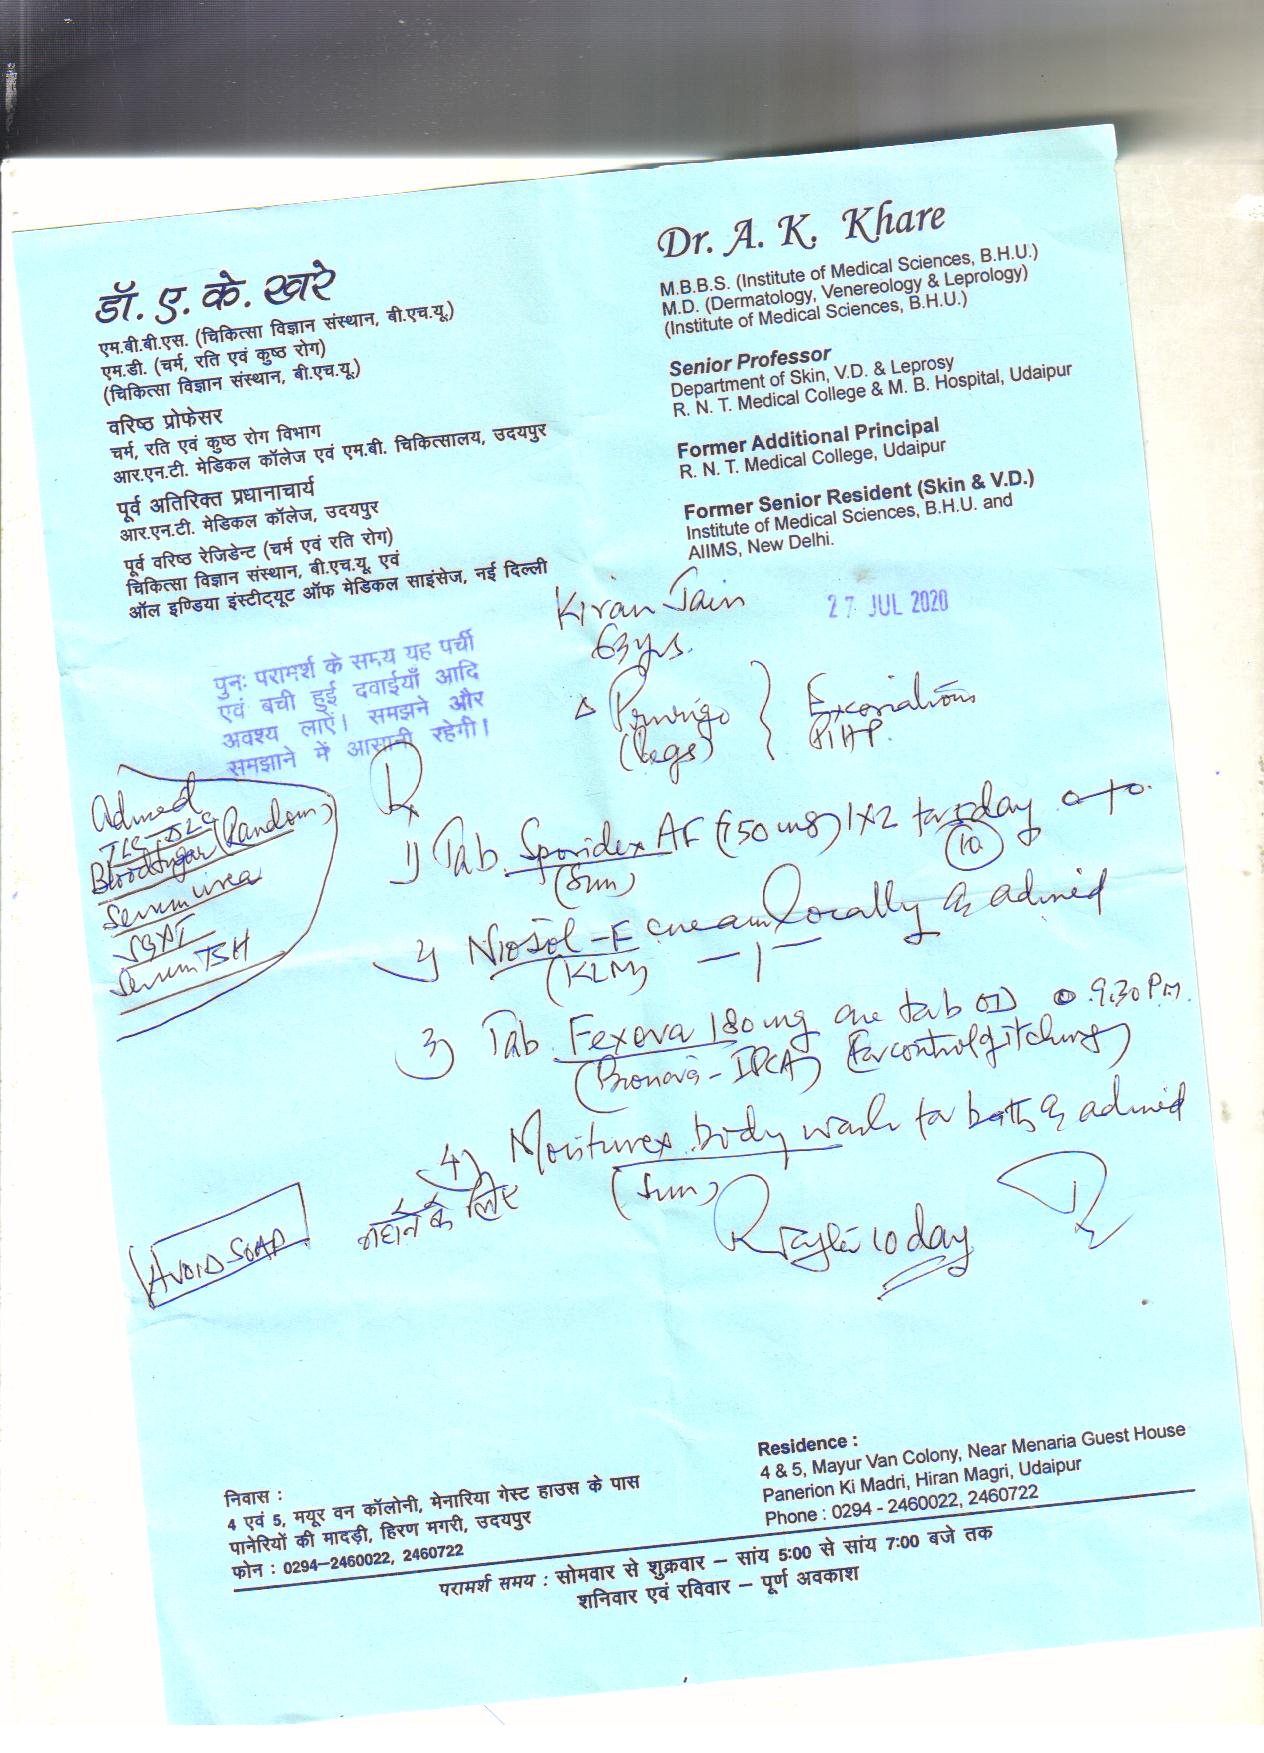 डॉ. ए. के. खरे
एम.बी.बी.एस. (चिकित्सा विज्ञान संस्थान, बी.एच.यू.)
एम.डी. (चर्म, रति एवं कुष्ठ रोग)
(चिकित्सा विज्ञान संस्थान, बी.एच.यू.)
वरिष्ठ प्रोफेसर
चर्म, रति एवं कुष्ठ रोग विभाग
आर.एन.टी. मेडिकल कॉलेज एवं एम.बी. चिकित्सालय, उदयपुर
पूर्व अतिरिक्त प्रधानाचार्य
आर.एन.टी. मेडिकल कॉलेज, उदयपुर
पूर्व वरिष्ठ रेजिडेन्ट (चर्म एवं रति रोग)
चिकित्सा विज्ञान संस्थान, बी.एच.यू. एवं
ऑल इण्डिया इंस्टीट्यूट ऑफ मेडिकल साइंसेज, नई दिल्ली
Dr. A. K. Khare
M.B.B.S. (Institute of Medical Sciences, B.H.U.)
M.D. (Dermatology, Venereology & Leprology)
(Institute of Medical Sciences, B.H.U.)
Senior Professor
Department of Skin, V.D. & Leprosy
R. N. T. Medical College & M. B. Hospital, Udaipur
Former Additional Principal
R. N. T. Medical College, Udaipur
Former Senior Resident (Skin & V.D.)
Institute of Medical Sciences, B.H.U. and
AIIMS, New Delhi.
Kiran Jain
63yrs.
27 JUL 2020
पुनः परामर्श के समय यह पर्ची
एवं बची हुई दवाईयाँ आदि
अवश्य लाऐं। समझने और
समझाने में आसानी रहेगी।
Δ Prurigo } Excoriations
(legs) PIHP
Advised
TLC DLC
Blood Sugar (Random)
Serum Urea
SGPT
Serum TSH
Rx
1) Tab. Sporidex AF (750 mg) 1X2 for day
(Sun) 10
2) Niosol-E cream locally as advised
(KLM)
3) Tab. Fexova 180 mg one tab OD 9.30 P.M.
(Bronova - IPCA) (for control of itching)
4) Moisturex body wash for bath as advised
(Sun)
नहाने के लिए
AVOID SOAP
10 day
निवास :
4 एवं 5, मयूर वन कॉलोनी, मेनारिया गेस्ट हाउस के पास
पानेरियों की मादड़ी, हिरण मगरी, उदयपुर
फोन : 0294-2460022, 2460722
Residence :
4 & 5, Mayur Van Colony, Near Menaria Guest House
Panerion Ki Madri, Hiran Magri, Udaipur
Phone : 0294 - 2460022, 2460722
परामर्श समय : सोमवार से शुक्रवार – सांय 5:00 से सांय 7:00 बजे तक
शनिवार एवं रविवार – पूर्ण अवकाश